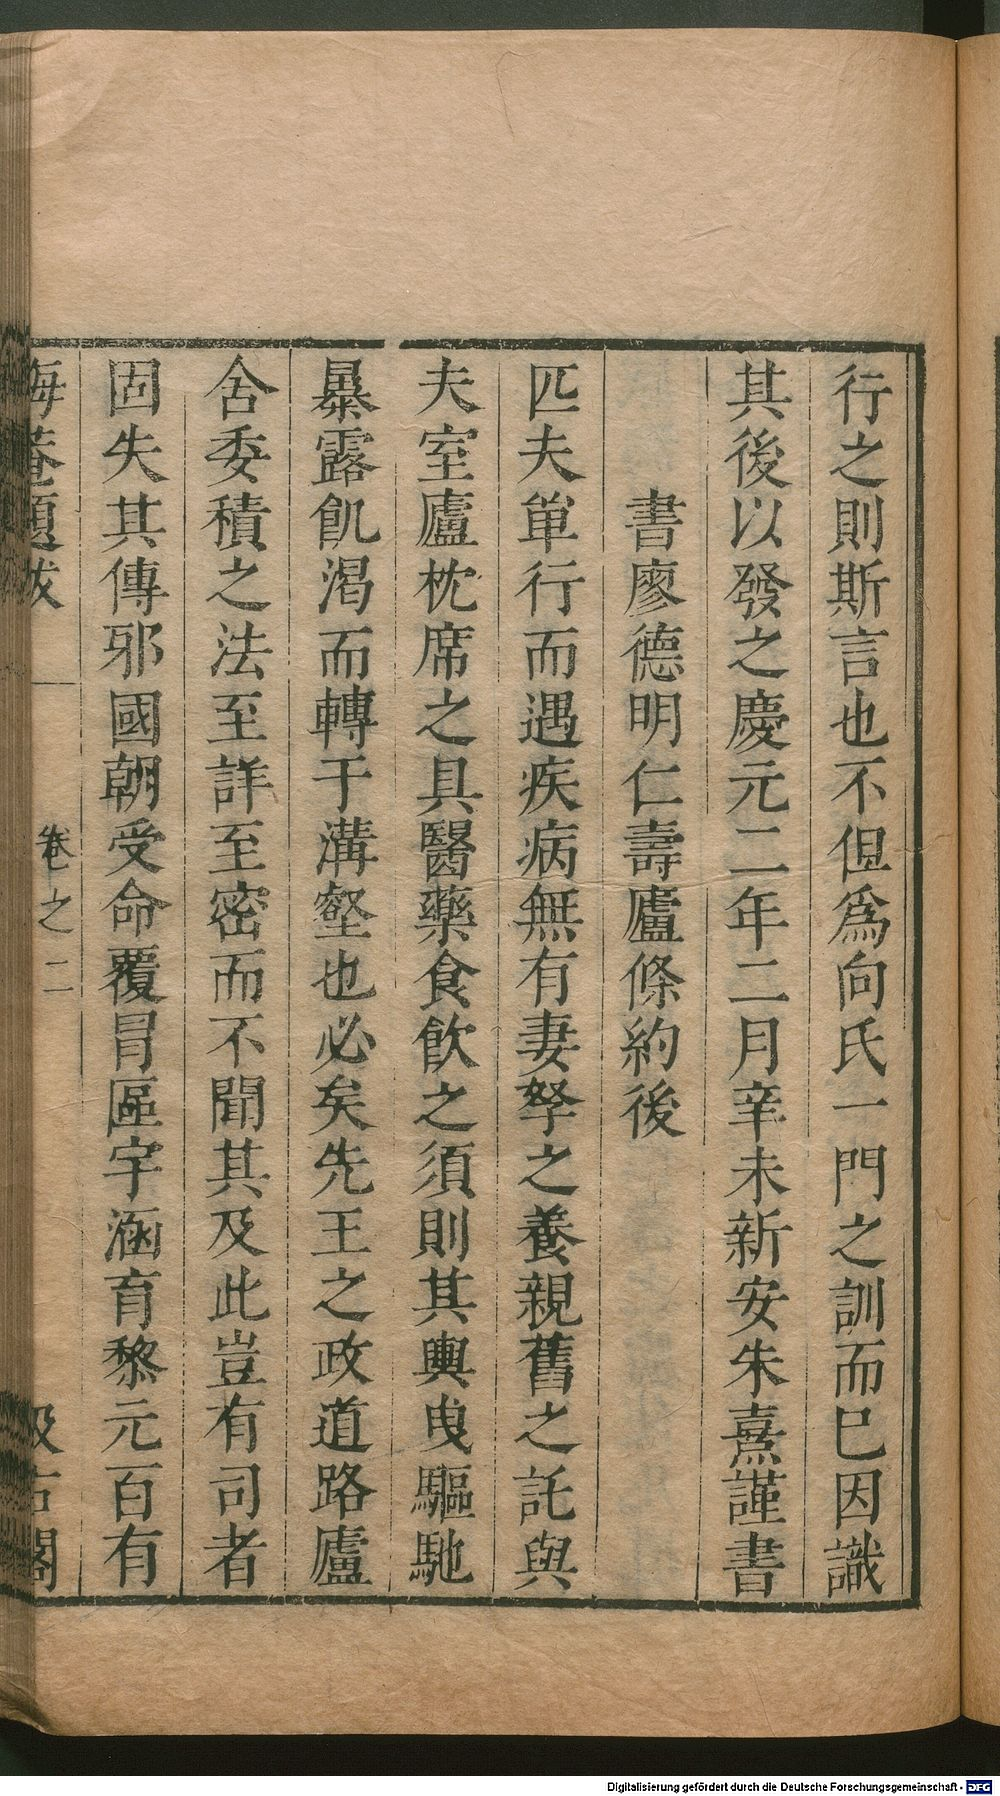 行之則斯言也不但爲向氏一門之訓而巳因識
其後以發之慶元二年二月辛未新安朱熹謹書
書廖德明仁壽廬條約後
匹夫單行而遇疾病無有妻孥之養親舊之託與
夫室廬枕席之具醫藥食飮之須則其輿曳驅馳
暴露飢渴而轉于溝壑也必矣先王之政道路廬
舍委積之法至詳至密而不聞其及此豈有司者
固失其傳邪國朝受命覆冒區宇涵育黎元百有
海菴題跋 卷之二 汲古閣
Digitalisierung gefördert durch die Deutsche Forschungsgemeinschaft - DFG